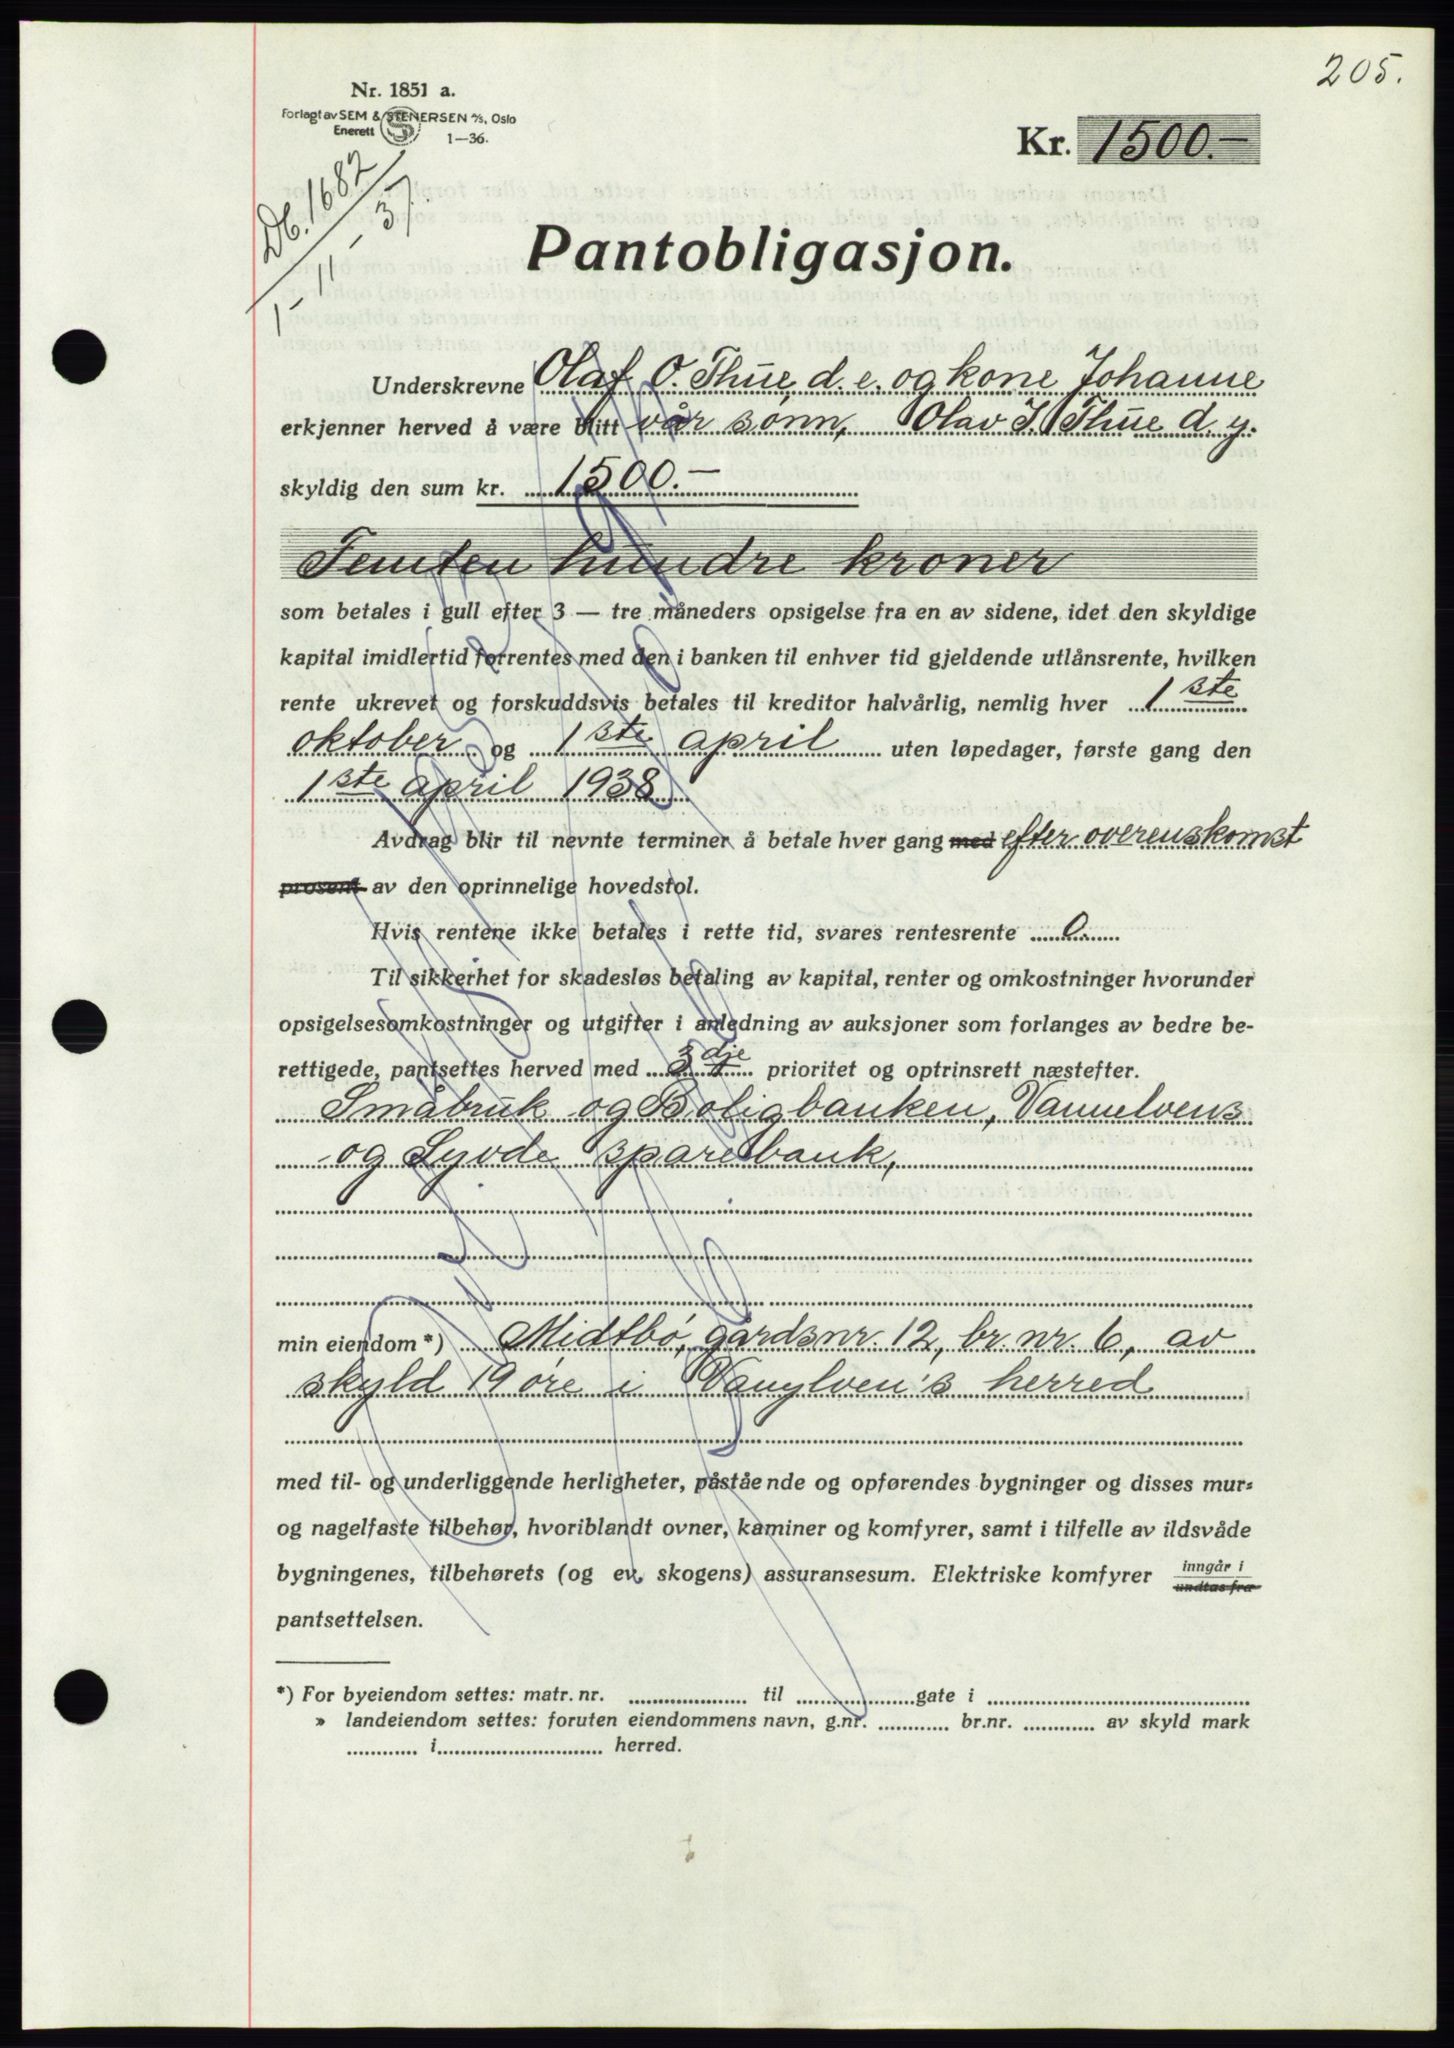 205.
Nr. 1851 a.
Forlagt av SEM & STENERSEN A/S, Oslo
Enerett
1-36.
Kr. 1500.-
Db. 1682
1-11-37.
Pantobligasjon.
Underskrevne Olaf O. Thue, d. e. og kone Johanne
erkjenner herved å være blitt vår sønn, Olav J. Thue d. y.
skyldig den sum kr. 1500.-
Femten hundre kroner
som betales i gull efter 3 — tre måneders opsigelse fra en av sidene, idet den skyldige
kapital imidlertid forrentes med den i banken til enhver tid gjeldende utlånsrente, hvilken
rente ukrevet og forskuddsvis betales til kreditor halvårlig, nemlig hver 1ste
oktober og 1ste april uten løpedager, første gang den
1ste april 1938
Avdrag blir til nevnte terminer å betale hver gang med efter overenskomst
prosent av den oprinnelige hovedstol.
Hvis rentene ikke betales i rette tid, svares rentesrente 0.
Til sikkerhet for skadesløs betaling av kapital, renter og omkostninger hvorunder
opsigelsesomkostninger og utgifter i anledning av auksjoner som forlanges av bedre be-
rettigede, pantsettes herved med 3dje prioritet og optrinsrett næstefter.
Småbruk og Boligbanken, Vannelvens
og Syvde sparebank,
min eiendom *) Midtbø, gårdsnr. 12, br. nr. 6, av
skyld 19 øre i Vanylven's herred
med til- og underliggende herligheter, påstående og opførendes bygninger og disses mur-
og nagelfaste tilbehør, hvoriblandt ovner, kaminer og komfyrer, samt i tilfelle av ildsvåde
bygningenes, tilbehørets (og ev. skogens) assuransesum. Elektriske komfyrer inngår i
undtas fra
pantsettelsen.
*) For byeiendom settes: matr. nr. ........ til ........ gate i ........
» landeiendom settes: foruten eiendommens navn, g.nr. ........ br.nr. ........ av skyld mark
........ i ........ herred.